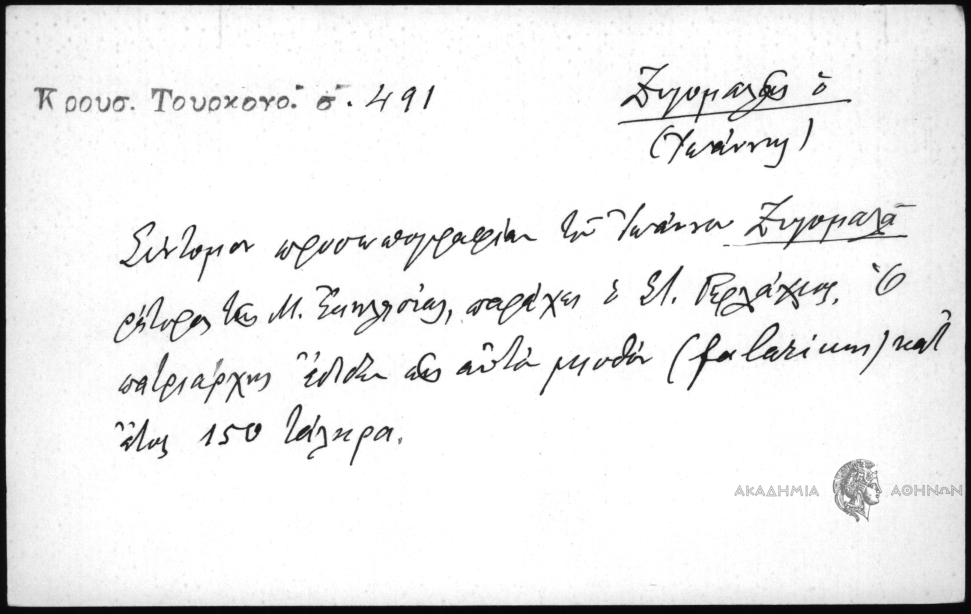 Κρουσ. Τουρκογρ. σ. 491
Ζυγομαλᾶς ὁ
(Ἰωάννης)
Σύντομον προσωπογραφίαν τοῦ Ἰωάννου Ζυγομαλᾶ
ρήτορος τῆς Μ. Ἐκκλησίας, παρέχει ὁ Στ. Γερλάχιος. Ὁ
πατριάρχης ἔδιδεν εἰς αὐτὸν μισθὸν (salarium) κατ'
ἔτος 150 τάληρα.
ΑΚΑΔΗΜΙΑ ΑΘΗΝΩΝ